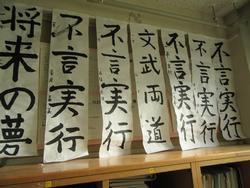 将来の夢
不言実行
不言実行
文武両道
不言実行
不言実行
不言実行